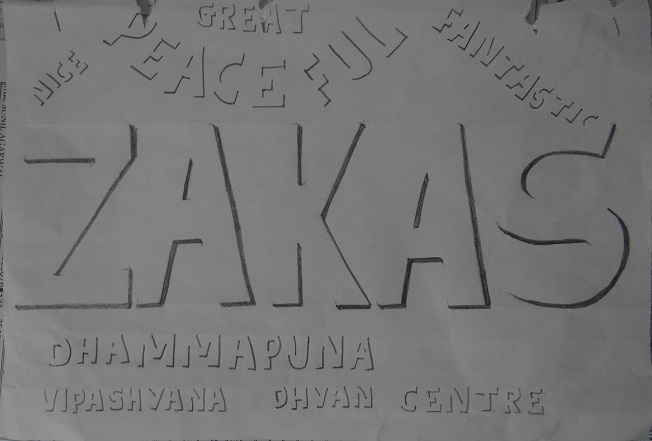 GREAT
NICE PEACEFUL FANTASTIC
ZAKAS
DHAMMAPUNA
VIPASHYANA DHYAN CENTRE